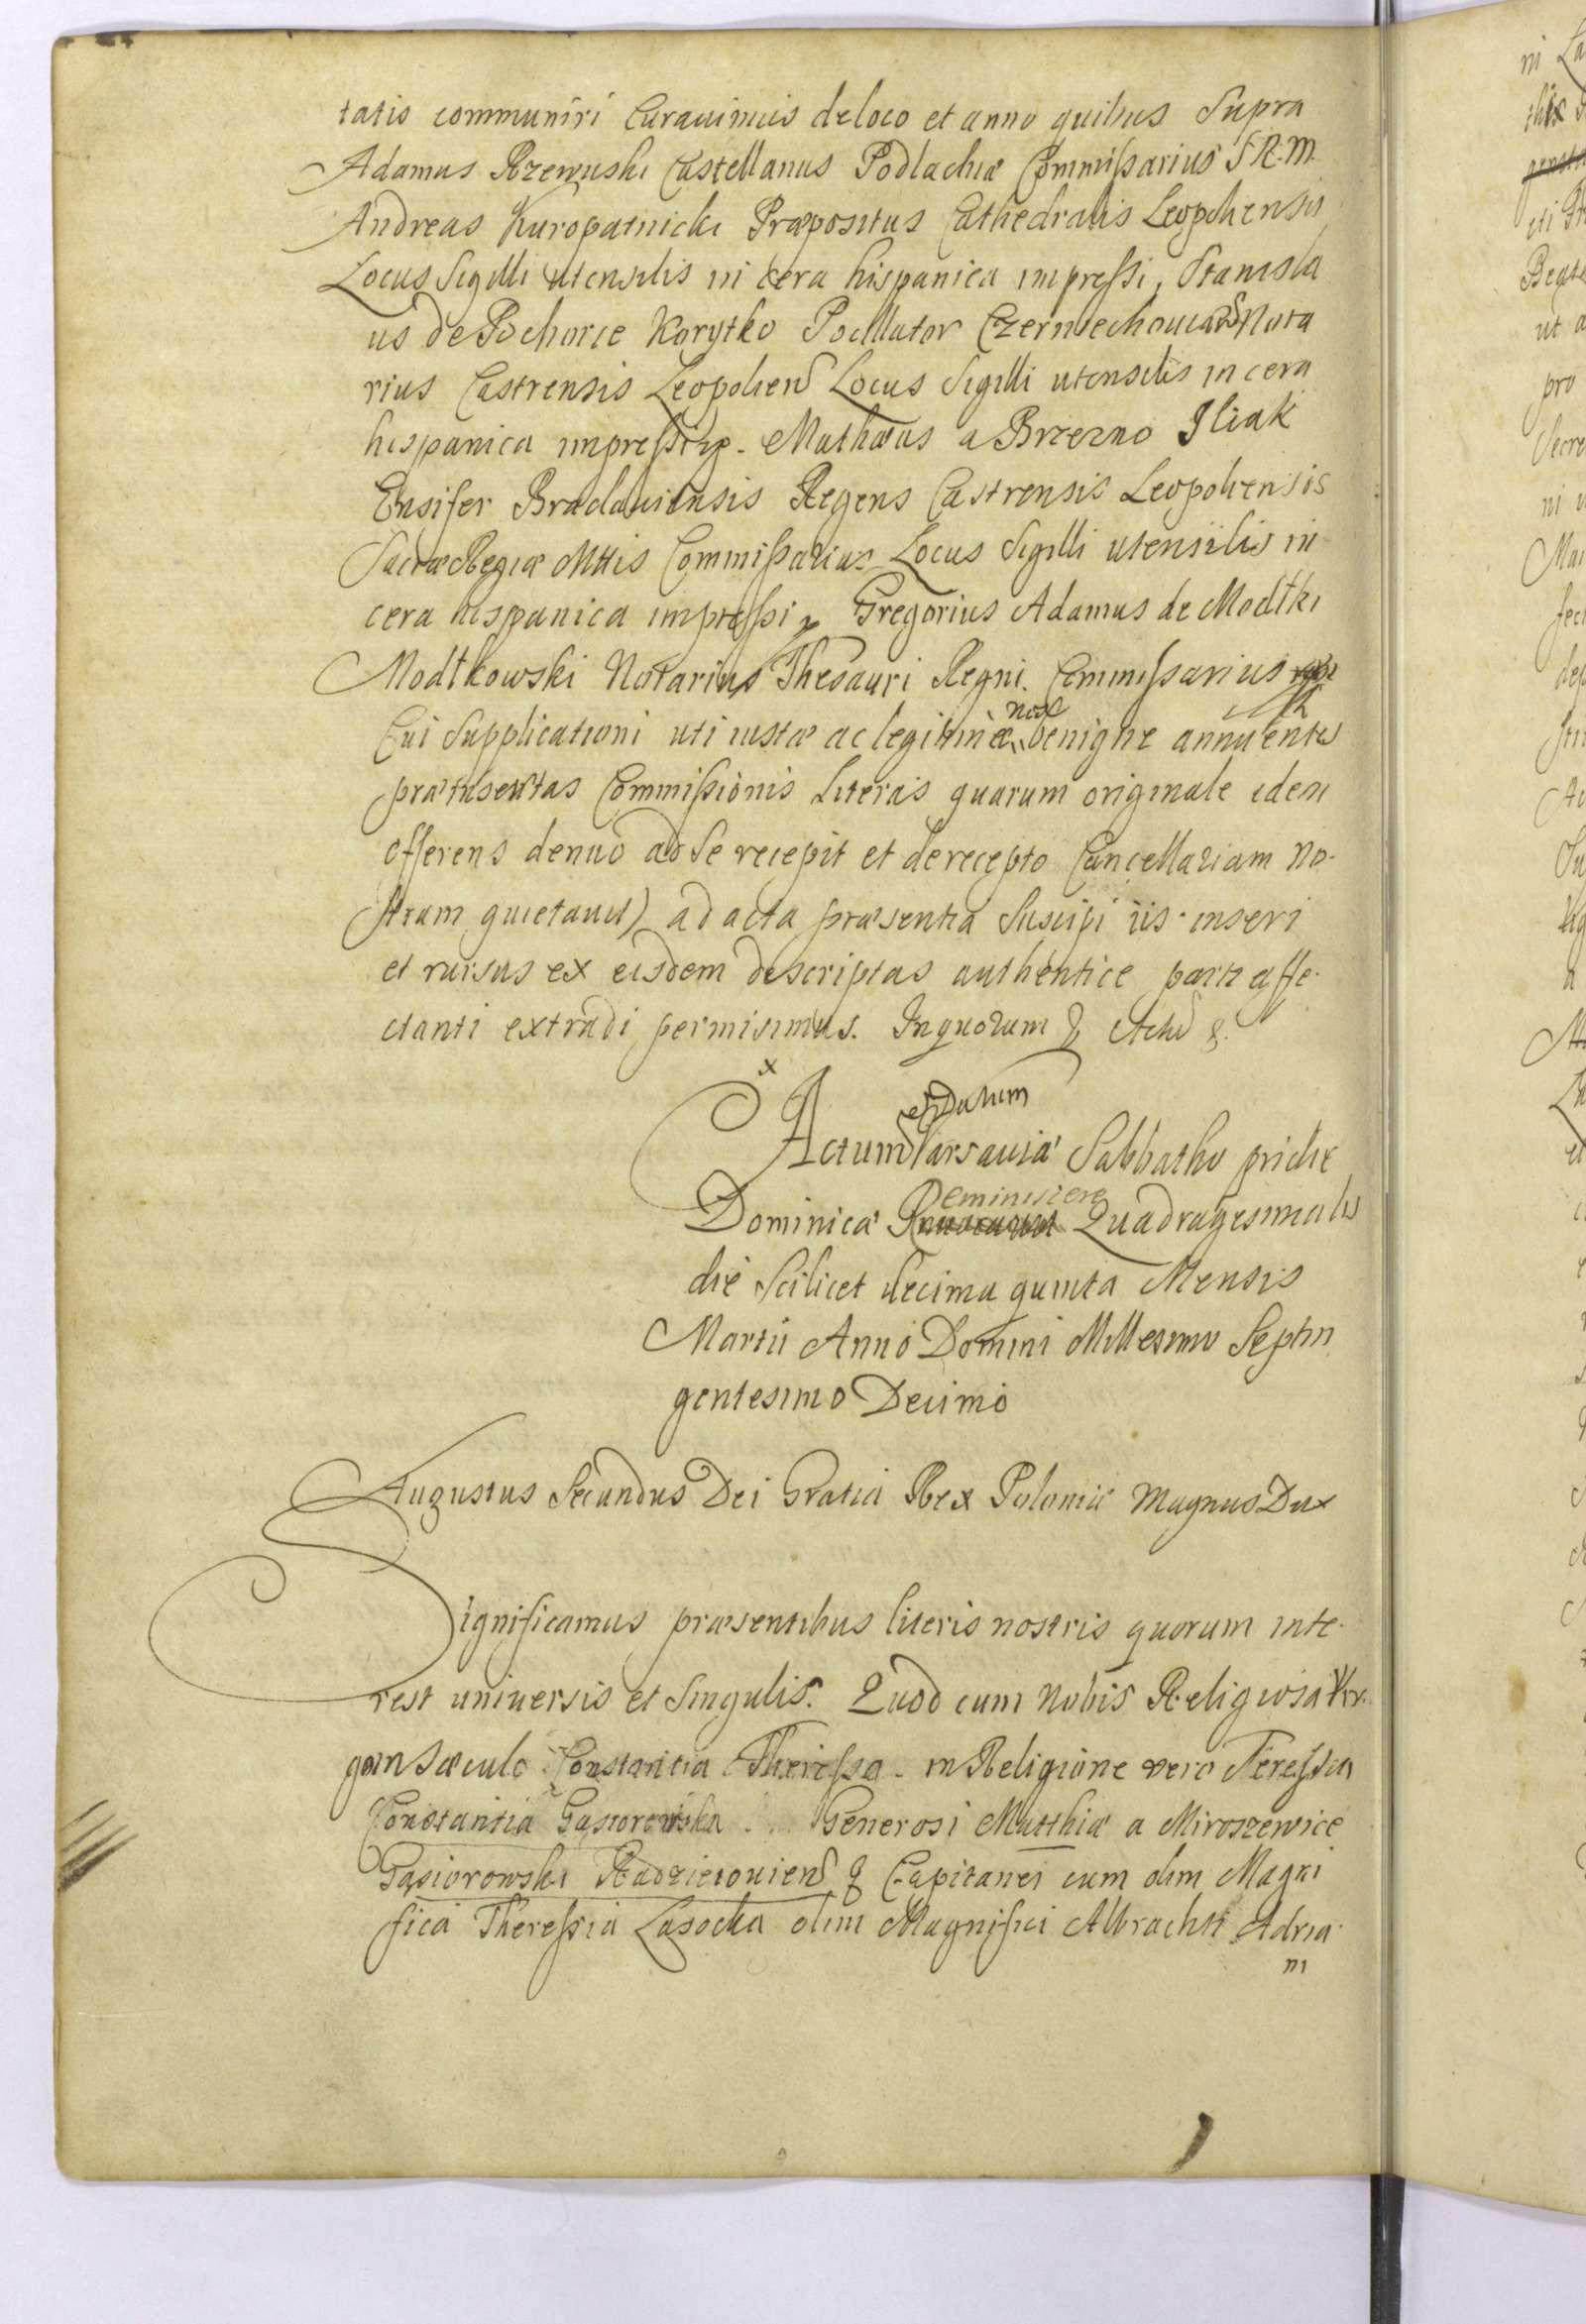 tatis communiri Curavimus de loco et anno quibus Supra
Adamus Rzewuski Castellanus Podlachiæ Commißarius S R. M.
Andreas Kuropatnicki Præpositus Cathedralis Leopoliensis
Locus Sigilli utensilis in cera hispanica impreßi, Stanisla
us de Pochorce Korytko Pocillator Czerniechovien Nota
rius Castrensis Leopolien Locus Sigilli utensilis in cera
hispanica impreßi. Mathæus a Brzezno Iliak
Ensifer Braclaviensis Regens Castrensis Leopoliensis
Sacræ Regiæ Mttis Commißarius Locus Sigilli utensilis in
cera hispanica impreßi, Gregorius Adamus de Modłki
Modłkowski Notarius Thesauri Regni. Commißarius
nos
Cui Supplicationi uti iustæ ac legitimæ benigne annuentes
præinsertas Commißionis Literas quarum originale idem
offerens denuò ad Se recepit et de recepto Cancellariam No-
stram quietavit) ad acta præsentia Suscipi iis inseri
et rursus ex eisdem descriptas authentice parti affe-
ctanti extradi permisimus. In quorum & Actũ &.
et Datum
Actum Varsaviæ Sabbatho pridie
Reminiscere
Dominicæ Quadragesimalis
die Scilicet decima quinta Mensis
Martii Anno Domini Millesimo Septin
gentesimo Decimo
Augustus Secundus Dei Gratia Rex Poloniæ Magnus Dux
Significamus præsentibus literis nostris quorum inte-
rest universis et Singulis. Quod cum Nobis Religiosa Vir-
go in Sæculo Constantia Thereßa in Religione vero Tereßia
Constantia Gąsiorowska Generosi Matthiæ a Miroszewice
Gąsiorowski Radzieiovien & Capitanei cum olim Magni
fica Thereßia Lasocka olim Magnifici Albrachti Adria-
ni